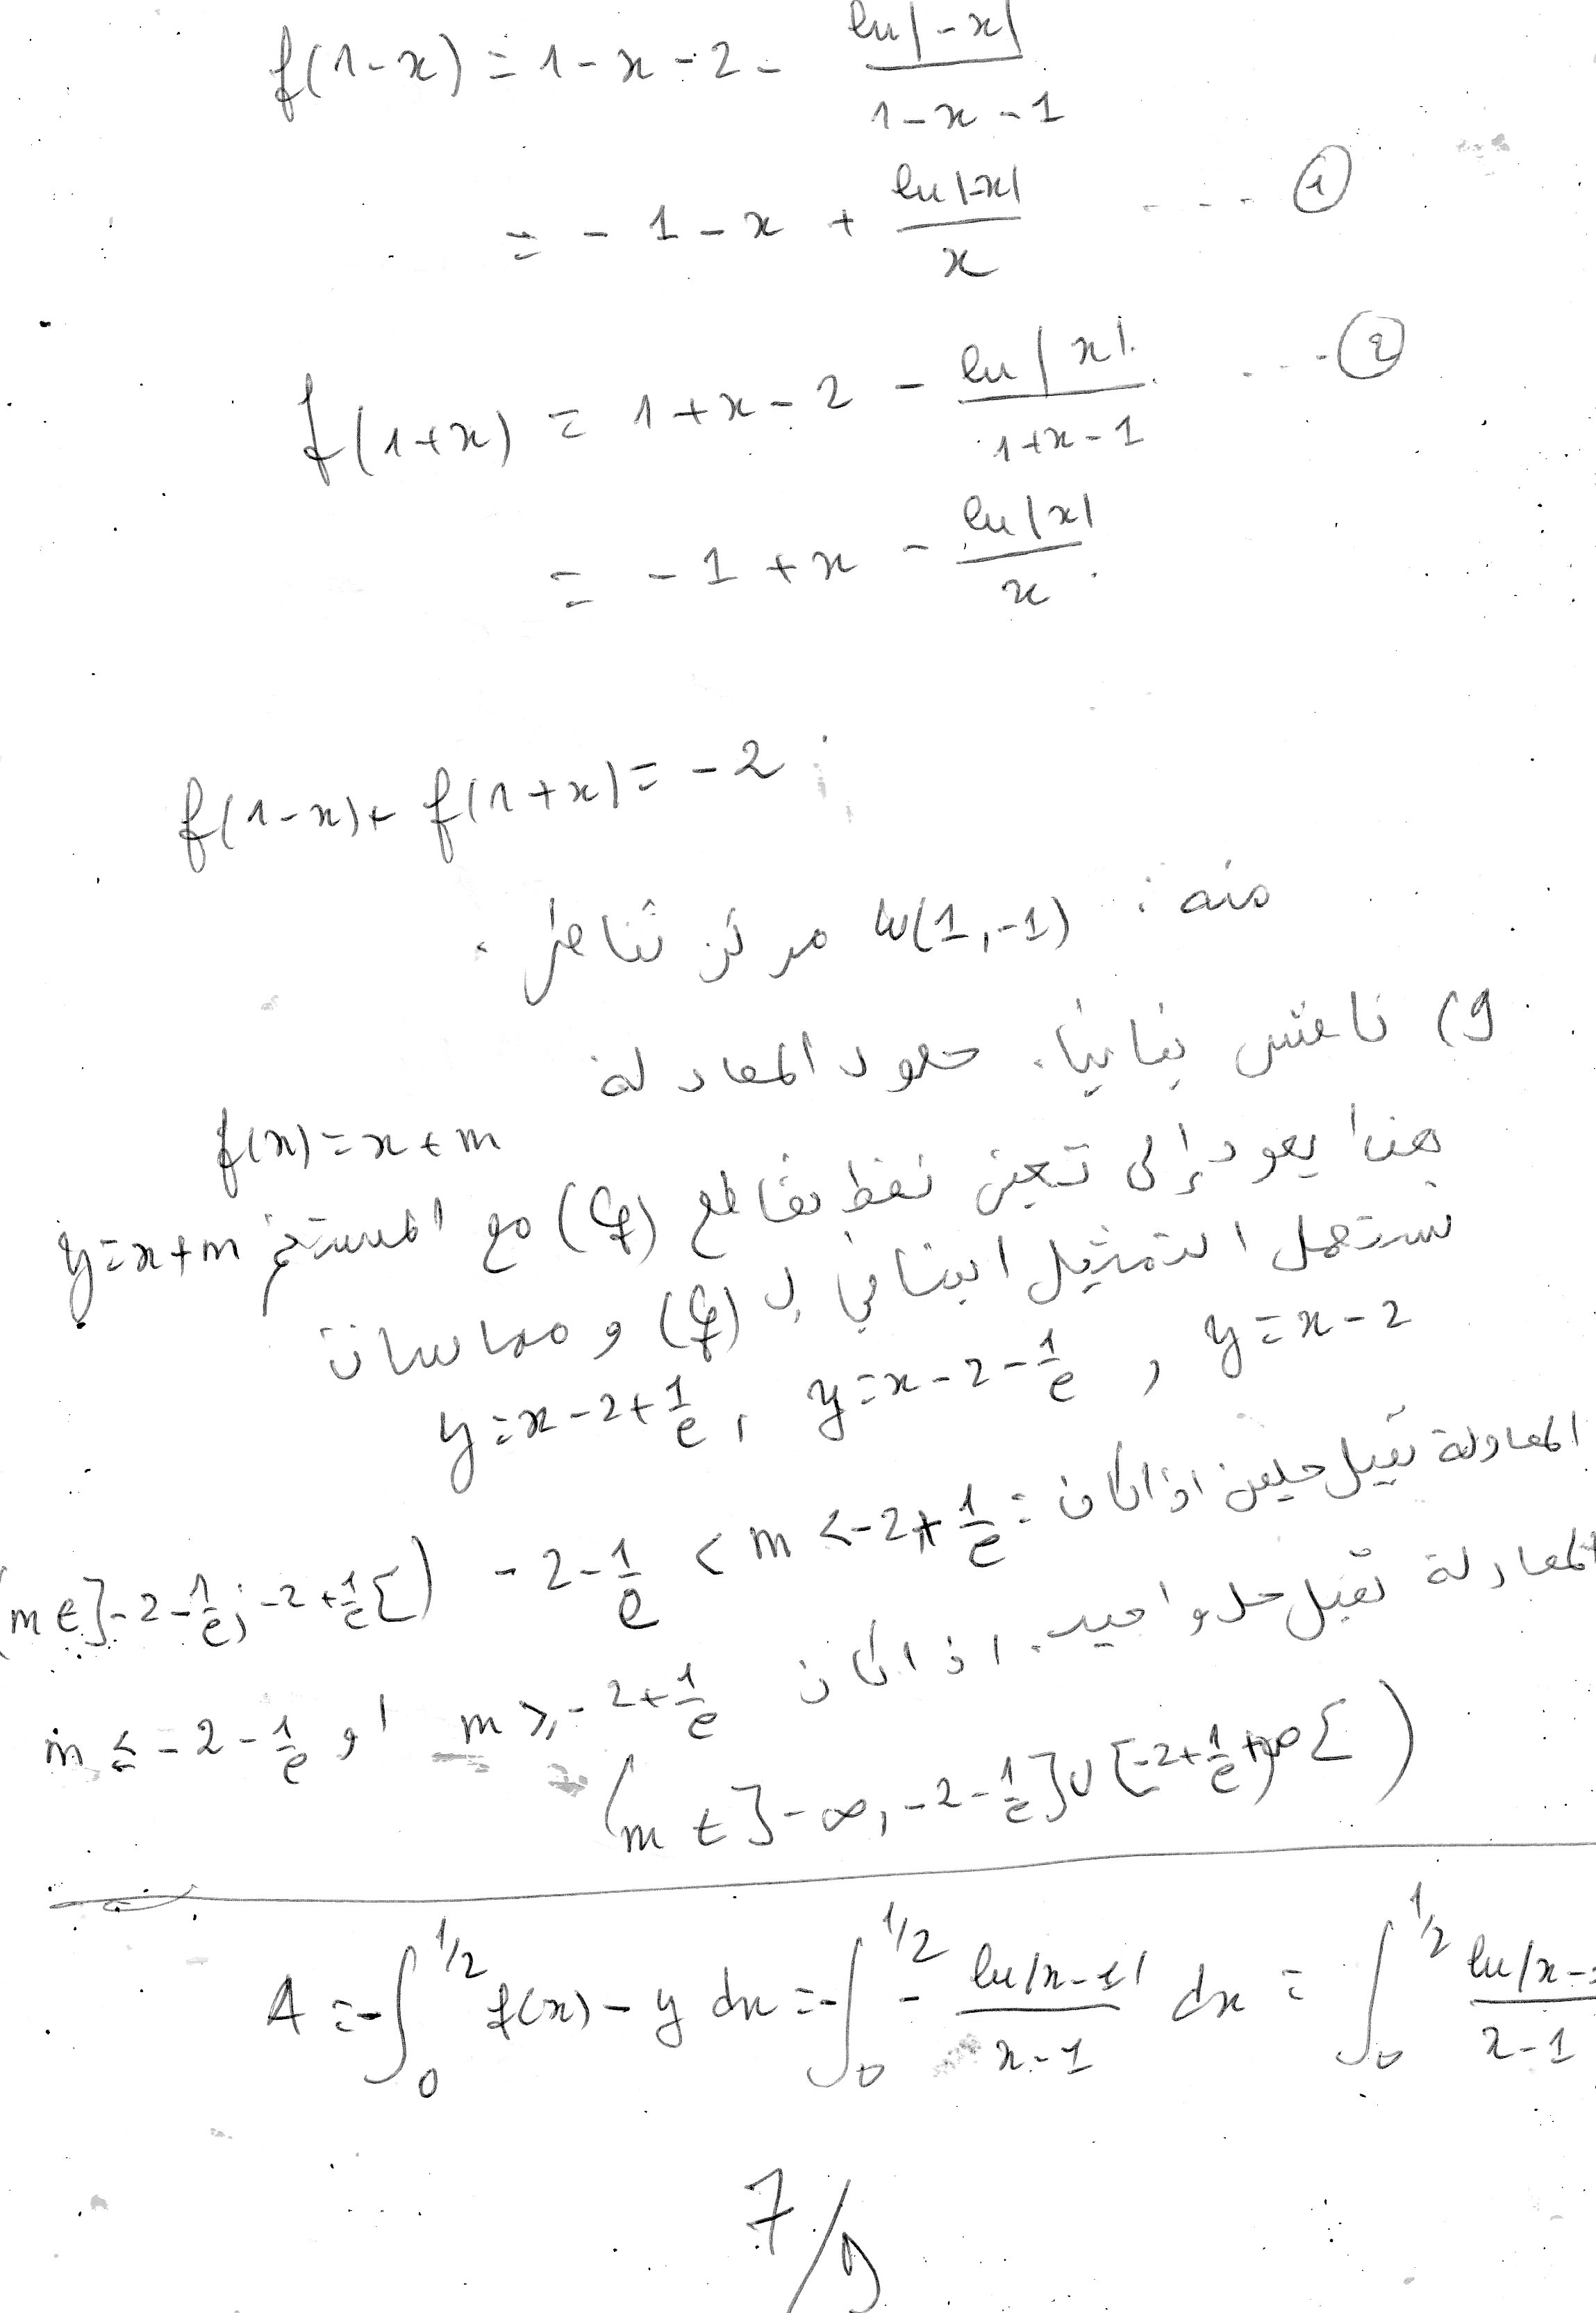 f(1-x) = 1-x-2- ln|-x| / 1-x-1
= -1-x + ln|-x| / x ... ①
f(1+x) = 1+x-2 - ln|x| / 1+x-1 ... ②
= -1+x - ln|x| / x
f(1-x)+ f(1+x) = -2
منه: w(1,-1) مركز تناظر.
9) ناقش بيانيا. حلول المعادلة
f(x)=x+m
هذا يعود إلى تعين نقط تقاطع (Cf) مع المستقيم y=x+m
نستعمل التمثيل البياني لـ (Cf) و مماسات
y=x-2 , y=x-2-1/e , y=x-2+1/e
المعادلة تقبل حلين اذا كان: -2-1/e < m < -2+1/e (m∈]-2-1/e; -2+1/e[)
المعادلة تقبل حل واحيد. اذا كان m ≥ -2+1/e او m ≤ -2-1/e
(m∈]-∞, -2-1/e]∪[-2+1/e, +∞[)
A = -∫₀^1/2 f(x)-y dx = -∫₀^1/2 - ln|x-1| / x-1 dx = ∫₀^1/2 ln|x- / x-1
7/9